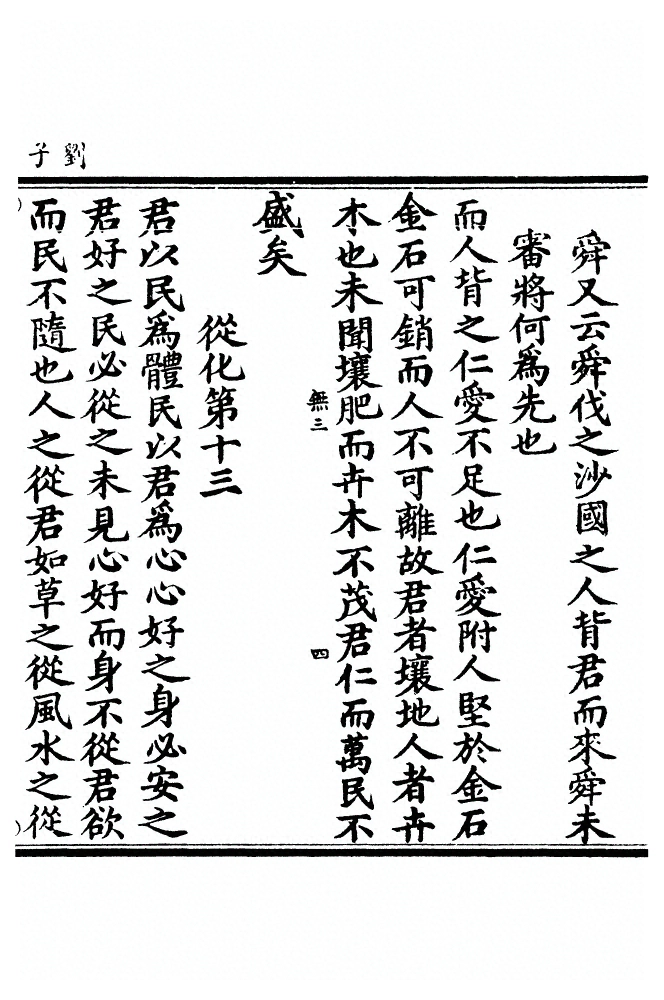 劉子
舜又云舜伐之沙國之人背君而來舜未
審將何爲先也
而人背之仁愛不足也仁愛附人堅於金石
金石可銷而人不可離故君者壤地人者卉
木也未聞壤肥而卉木不茂君仁而萬民不
無三
四
盛矣
從化第十三
君以民爲體民以君爲心心好之身必安之
君好之民必從之未見心好而身不從君欲
而民不隨也人之從君如草之從風水之從